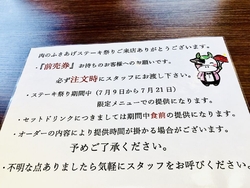 肉のふきあげステーキ祭りご来店ありがとうございます。
・『前売券』お持ちのお客様へのお願いです。
必ず注文時にスタッフにお渡し下さい。
・ステーキ祭り期間中(7月9日から7月21日)
限定メニューでの提供になります。
・セットドリンクにつきましては期間中食前の提供になります。
・オーダーの内容により提供時間が掛かる場合がございます。
予めご了承ください。
・不明な点ありましたら気軽にスタッフをお呼びください。